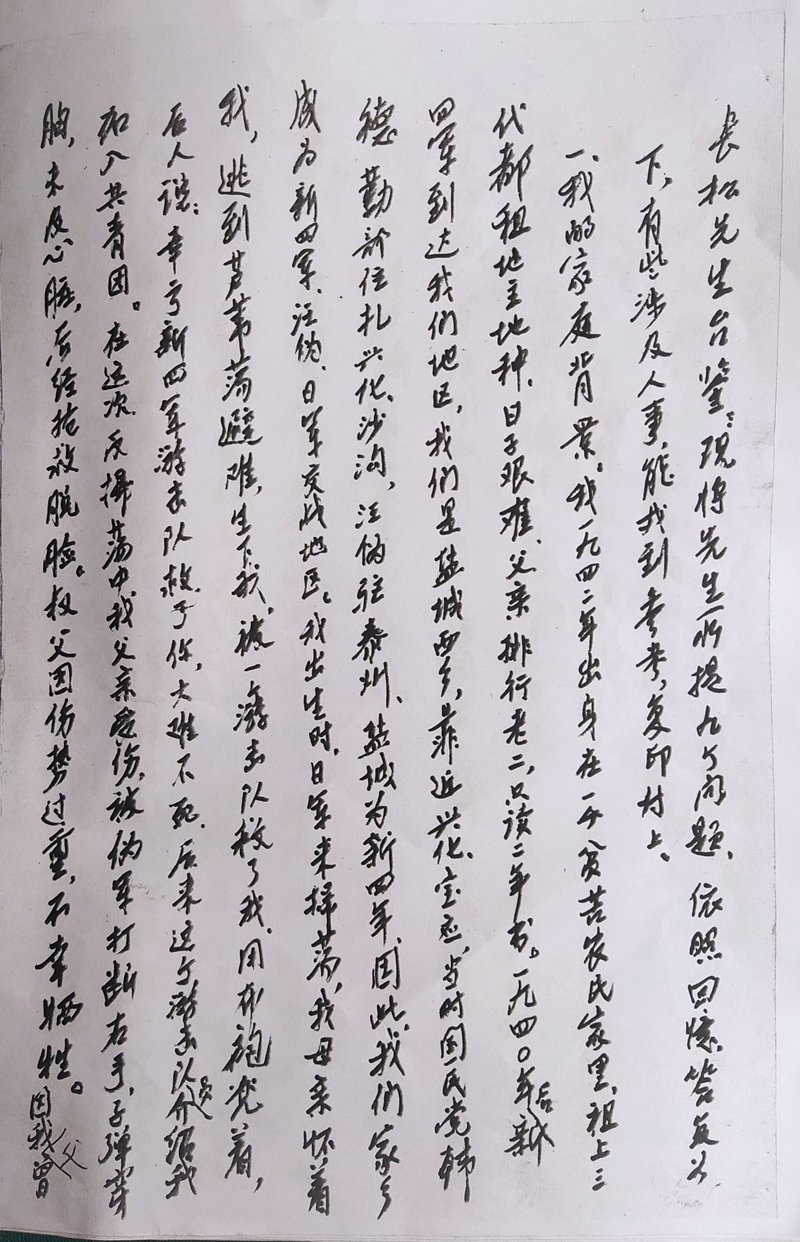 长松先生台鉴：现将先生所提九个问题，依照回忆，答复以
下，有些涉及人事，能找到参考，复印材上。
一、我的家庭背景。我一九四二年出身在一个贫苦农民家里，祖上三
代都租地主地种，日子艰难、父亲排行老二，只读二年书。一九四〇年后新
四军到达我们地区，我们是盐城西乡，靠近兴化、宝应，当时国民党韩
德勤部住扎兴化、沙沟，汪伪驻泰州、盐城为新四军，因此，我们家乡
成为新四军、汪伪、日军交战地区。我出生时，日军来掃荡，我母亲怀着
我，逃到芦苇荡避难，生下我，被一游击队救了我、用布袍兜着，
后人说：幸亏新四军游击队救了你，大难不死、后来这个游击队员介绍我
加入共青团。在这次反掃荡中我父亲受伤，被伪军打断右手，子弹穿
胸，未及心脏，后经抢救脱险。叔父因伤势过重，不幸牺牲。因我父曾